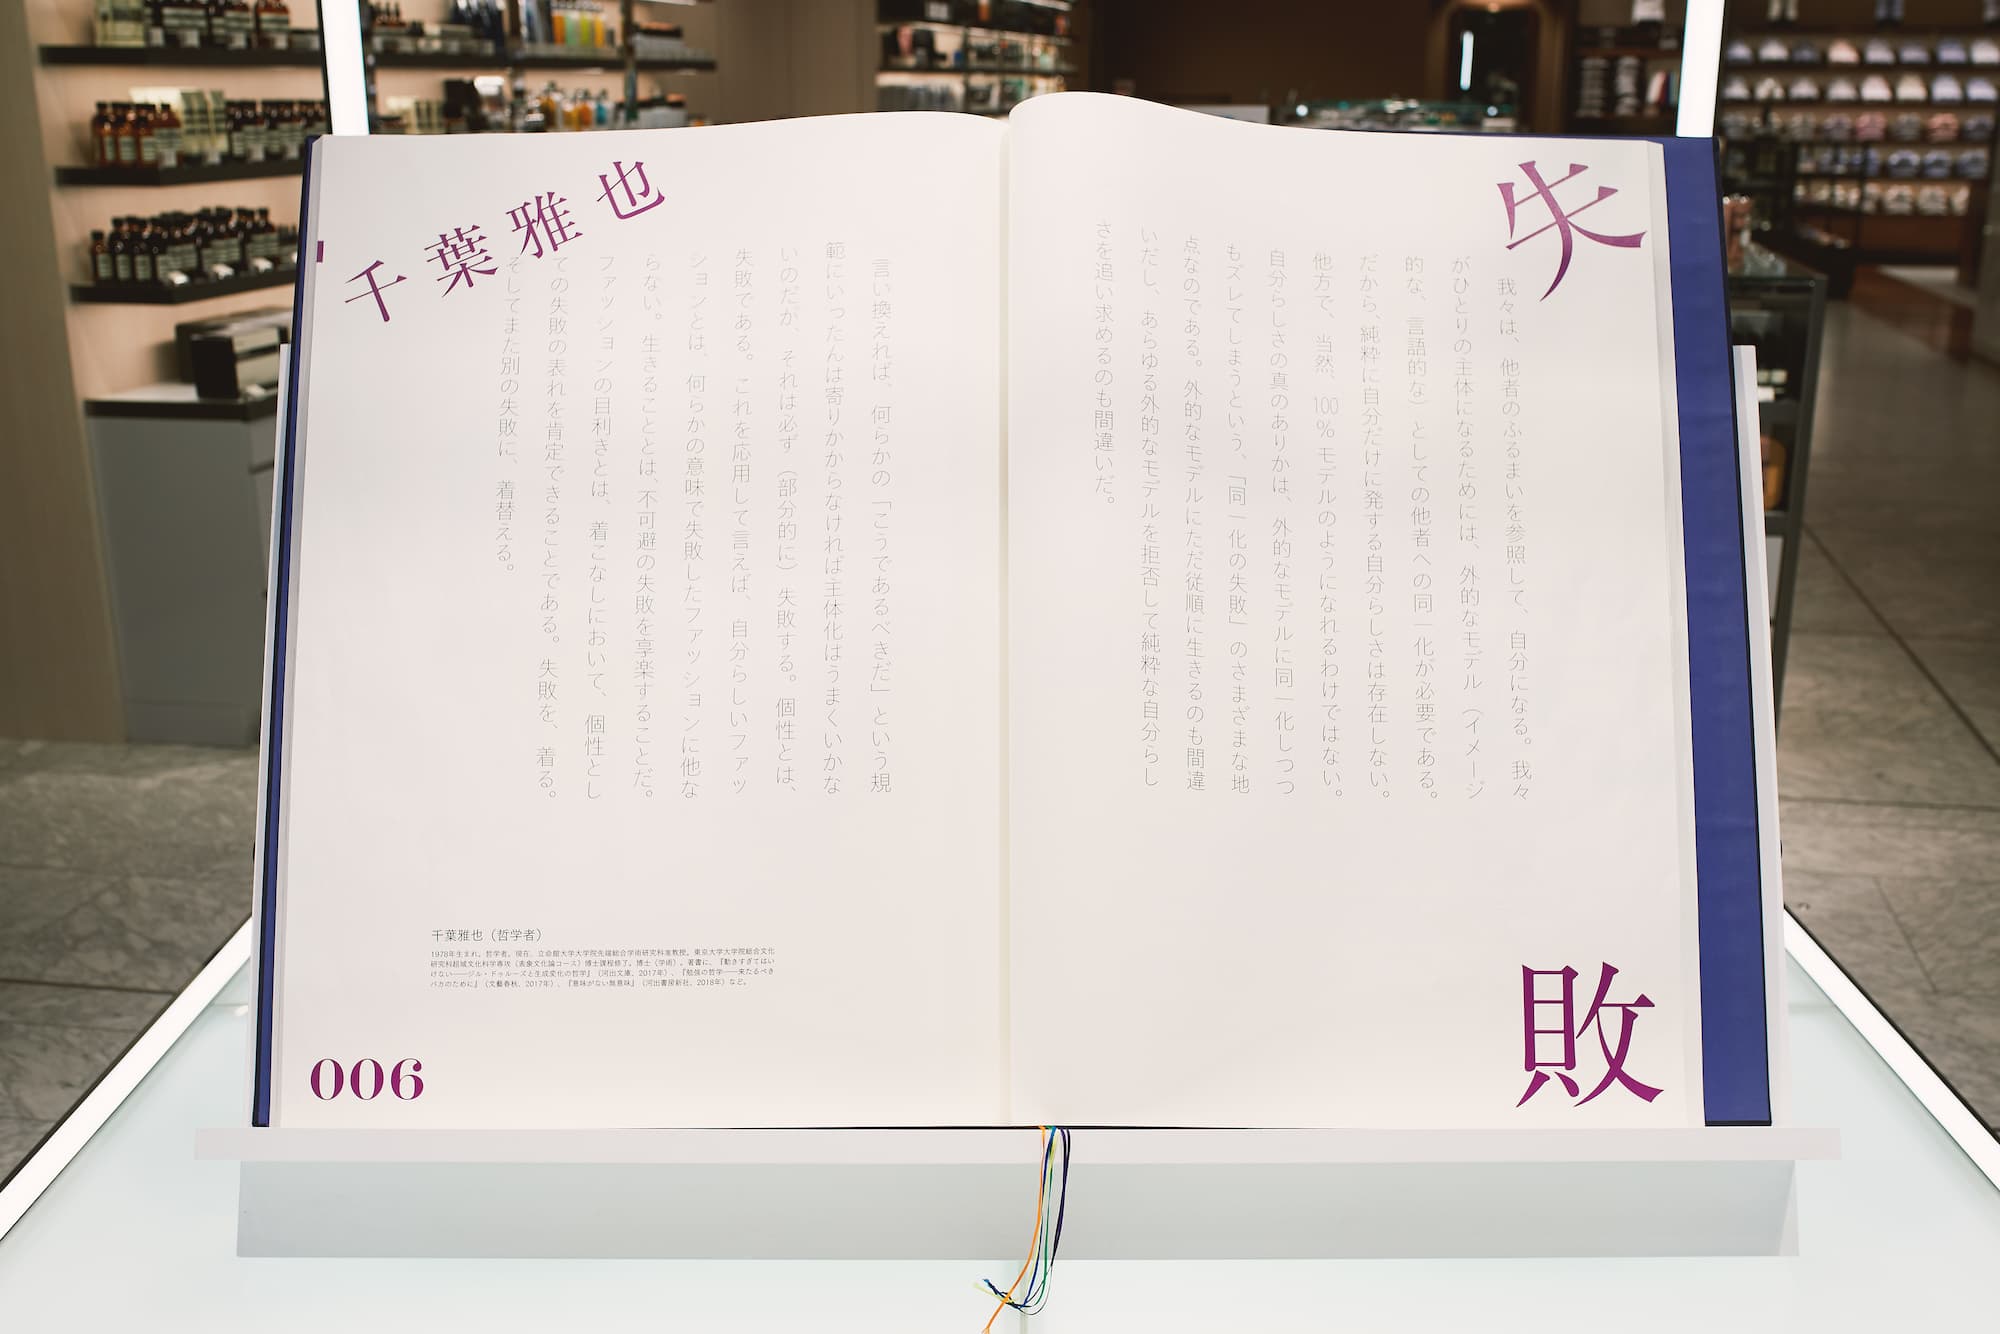 失敗
我々は、他者のふるまいを参照して、自分になる。我々
がひとりの主体になるためには、外的なモデル（イメージ
的な、言語的な）としての他者への同一化が必要である。
だから、純粋に自分だけに発する自分らしさは存在しない。
他方で、当然、100％モデルのようになれるわけではない。
自分らしさの真のありかは、外的なモデルに同一化しつつ
もズレてしまうという、「同一化の失敗」のさまざまな地
点なのである。外的なモデルにただ従順に生きるのも間違
いだし、あらゆる外的なモデルを拒否して純粋な自分らし
さを追い求めるのも間違いだ。
言い換えれば、何らかの「こうであるべきだ」という規
範にいったんは寄りかからなければ主体化はうまくいかな
いのだが、それは必ず（部分的に）失敗する。個性とは、
失敗である。これを応用して言えば、自分らしいファッ
ションとは、何らかの意味で失敗したファッションに他な
らない。生きることとは、不可避の失敗を享楽することだ。
ファッションの目利きとは、着こなしにおいて、個性とし
ての失敗の表れを肯定できることである。失敗を、着る。
そしてまた別の失敗に、着替える。
千葉雅也
千葉雅也（哲学者）
1978年生まれ。哲学者。現在、立命館大学大学院先端総合学術研究科准教授。東京大学大学院総合文化
研究科超域文化科学専攻（表象文化論コース）博士課程修了。博士（学術）。著書に、『動きすぎてはい
けない──ジル・ドゥルーズと生成変化の哲学』（河出文庫、2017年）、『勉強の哲学──来たるべき
バカのために』（文藝春秋、2017年）、『意味がない無意味』（河出書房新社、2018年）など。
006